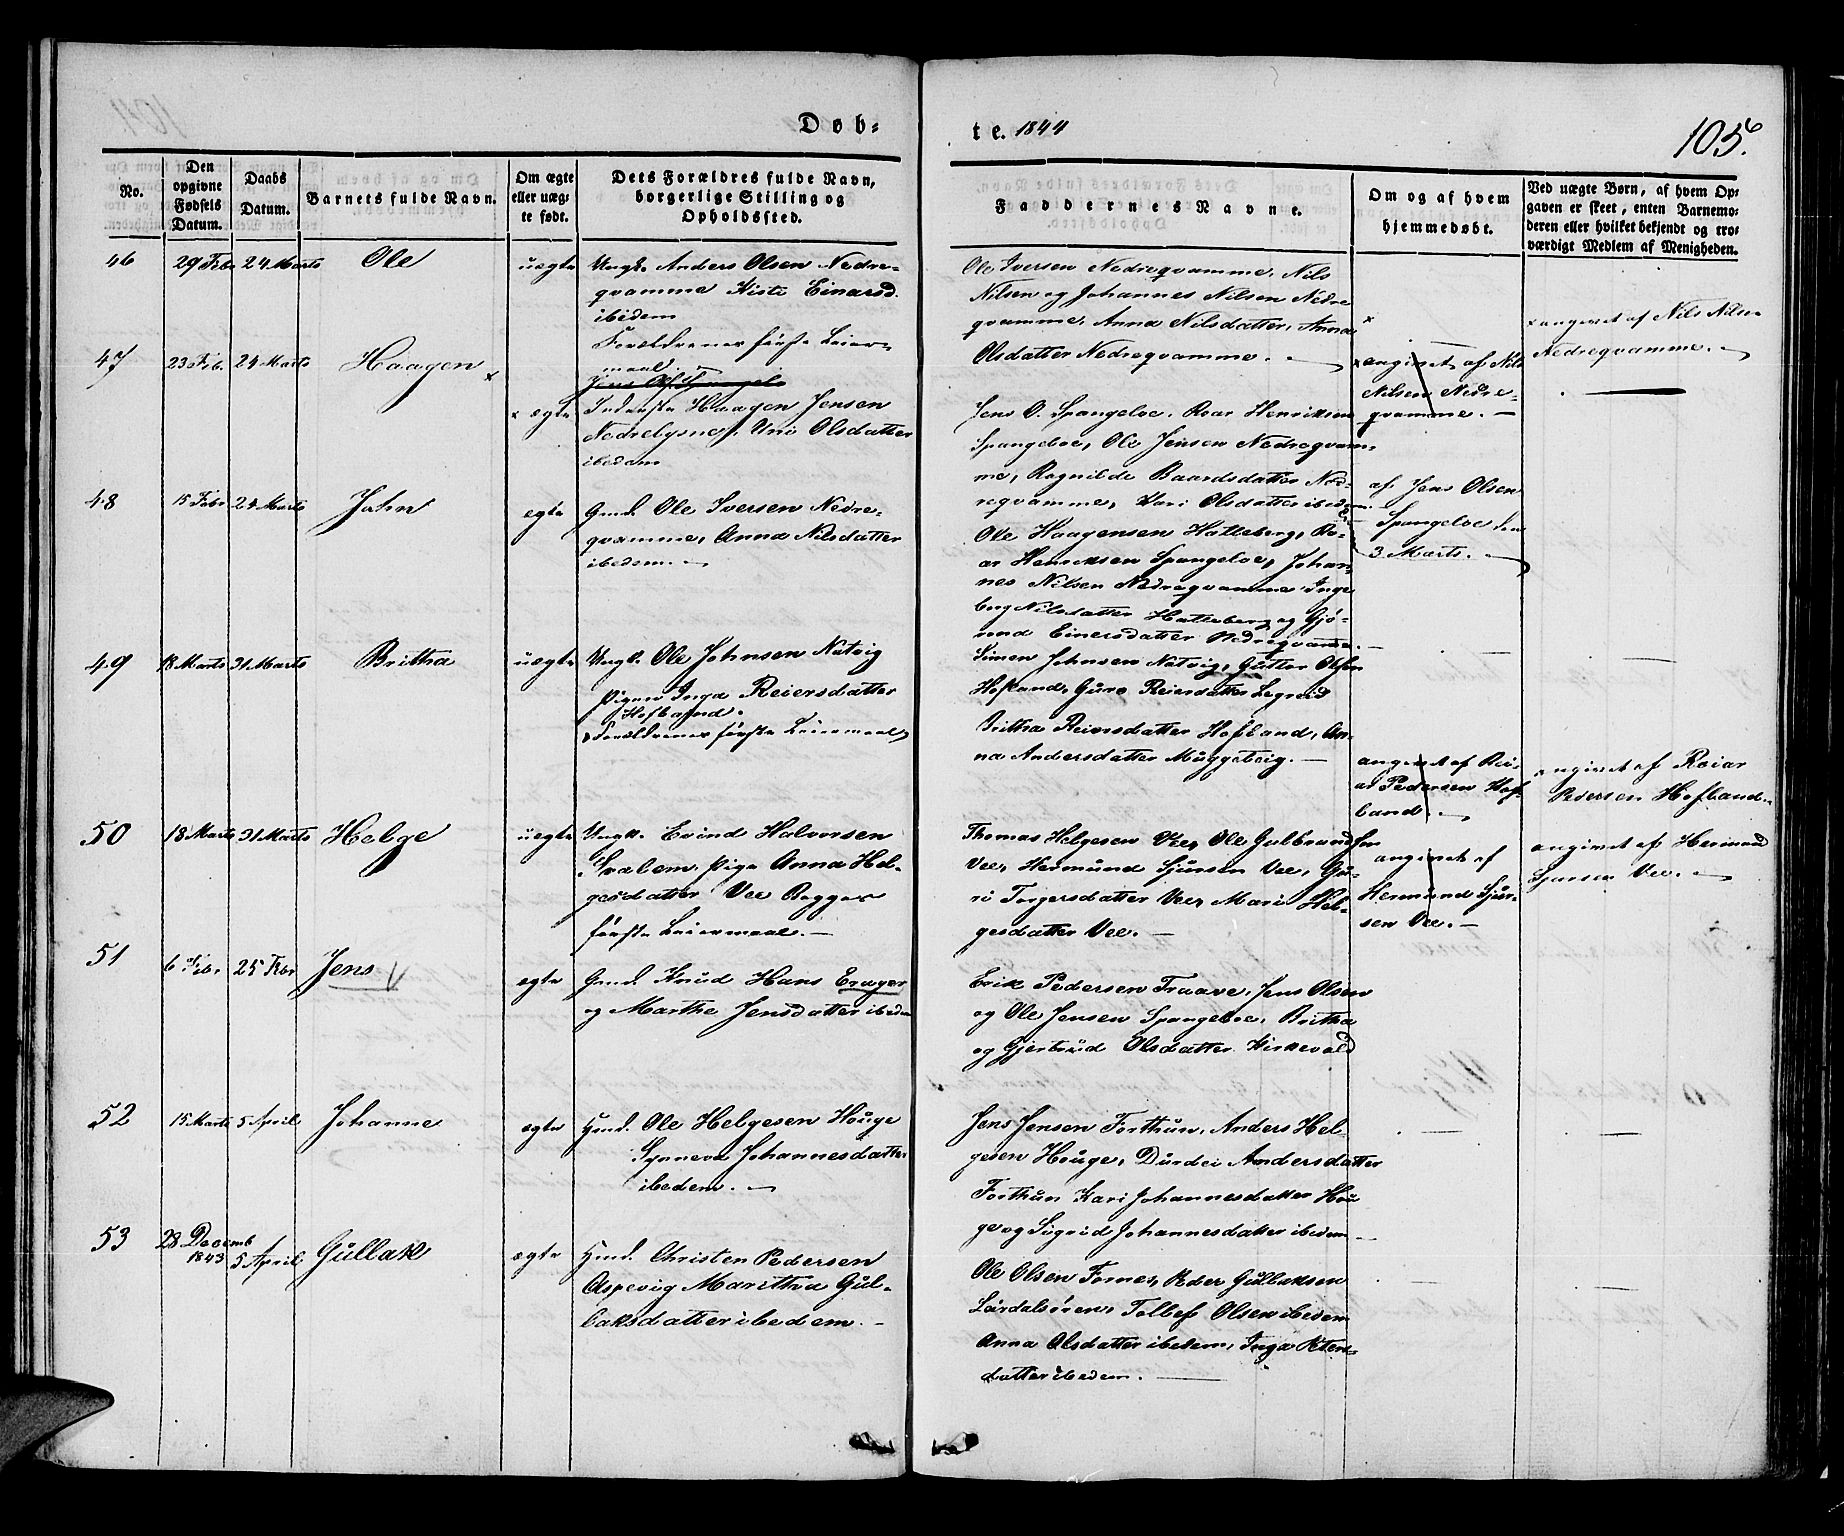 Døb-
te. 1844
105.
No.
Den opgivne Fødsels Datum.
Daabs Datum.
Barnets fulde Navn.
Om ægte eller uægte født.
Dets Forældres fulde Navn, borgerlige Stilling og Opholdssted.
Faddernes Navne.
Om og af hvem hjemmedøbt.
Ved uægte Børn, af hvem Opgaven er skeet, enten Barnemoderen eller hvilket bekjendt og troværdigt Medlem af Menigheden.
46 29 Febr 24 Marts Ole uægte
Ungk. Anders Olsen Nedre-
qvamme Kisti Einarsd.
ibidem
Forældrenes første Leier-
maal
Ole Iversen Nedreqvamme, Nils
Nilsen og Johannes Nilsen Nedre
qvamme, Anna Nilsdatter, Anna
Olsdatter Nedreqvamme. —
x angivet af Nils Nilsen
Nedreqvamme. —
47 23 Feb. 24 Marts Haagen x ægte
Inderste Haagen Jensen
Nedrelysne, Uni Olsdatter
ibedem
Jens O. Spangeloe, Roar Henriksen
Spangeloe, Ole Jensen Nedreqvam-
me, Ragnilde Baardsdatter Ned-
reqvamme, Kari Olsdatter ibedem
x angivet af Nils
Nilsen Nedre-
qvamme. —
af Jens Olsen
Spangeloe den
3 Marts. —
48 15 Febr 24 Marts John egte
Gmd. Ole Iversen Nedre-
qvamme, Anna Nilsdatter
ibedem. —
Ole Haagensen Hatleberg, Ro-
ar Henriksen Spangeloe, Johan-
nes Nilsen Nedreqvamme Inge
borg Nilsdatter Hatleberg og Gjø-
rend Einersdatter Nedreqvamme. —
49 18 Marts 31 Marts Britha uægte
Ungk. Ole Johnsen Natvig
Pigen Inga Reiersdatter
Hofland.
Forældrenes første Leiermaal
Simen Johnsen Natvig, Guttor Olsen
Hofland, Guro Reiersdatter Legreid
Britha Reiersdatter Hofland, An-
na Andersdatter Muggeteig. —
angivet af Rei-
ar Pedersen Hof-
land —
angivet af Reiar
Pedersen Hofland
50 18 Marts 31 Marts Helge uægte
Ungk. Evind Halvorsen
Pige Anna Hel-
gesdatter Vee Begges
første Leiermaal. —
Thomas Helgesen Vee, Ole Gulbrandsen
Vee, Hermund Sjursen Vee, Gu-
ri Torgersdatter Vee, Mari Hel-
gesdatter Vee. —
angivet af
Hermund Sjur-
sen Vee. —
angivet af Hermund
Sjursen Vee. —
51 6 Febr. 25 Febr Jens ægte
Gmd. Knud Hans Erager
og Marthe Jensdatter ibedem
Erik Pedersen Traave, Jens Olsen
og Ole Jensen Spangeloe, Britha
og Gjertrud Olsdatter Kirkevold
52 15 Marts 5 April Johanne ægte
Hmd. Ole Helgesen Houge
Synneva Johannesdatter
ibedem. —
Jens Jensen Forthun, Anders Hel
gesen Houge, Durdei Andersdatter
Forthun Kari Johannesdatter Hou
ge og Sigrid Johannesdatter ibedem
53 28 Decemb 1843 5 April Gullak ægte
Hmd. Christen Pedersen
Aspevig Maritha Gul-
laksdatter ibedem. —
Ole Olsen Fornes, Peder Gullaksen
Lærdalsøren, Tollef Olsen ibedem
Anna Olsdatter ibedem, Inga Peters-
datter ibedem. —